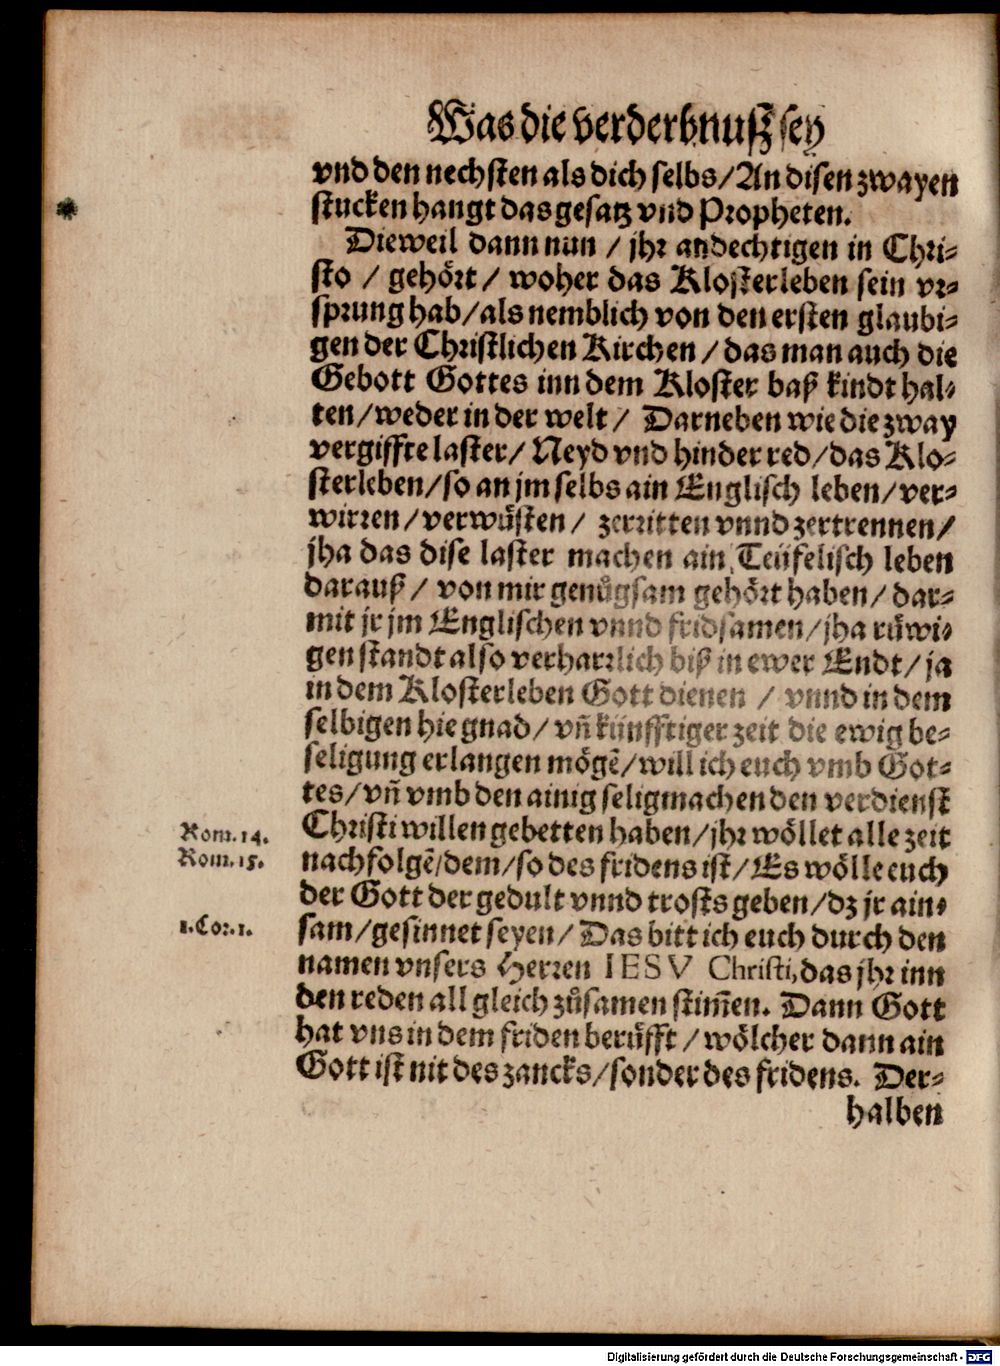 Was die verderbnuſz ſey
vnd den nechſten als dich ſelbs/An diſen zwayen
ſtucken hangt das geſatz vnd Propheten.
Dieweil dann nun / jhr andechtigen in Chri-
ſto / gehört / woher das Kloſterleben ſein vr-
ſprung hab/als nemblich von den erſten glaubi-
gen der Chriſtlichen Kirchen / das man auch die
Gebott Gottes inn dem Kloſter baß kindt hal-
ten/weder in der welt / Darneben wie die zway
vergiffte laſter/ Neyd vnd hinder red/das Klo-
ſterleben/ſo an jm ſelbs ain Engliſch leben/ver-
wirren/verwuͤſten/ zerritten vnnd zertrennen/
jha das diſe laſter machen ain Teüfeliſch leben
darauß / von mir genuͦgſam gehört haben/ dar-
mit jr jm Engliſchen vnnd fridſamen/jha ruͤwi-
gen ſtandt alſo verharrlich biß in ewer Endt/ja
in dem Kloſterleben Gott dienen / vnnd in dem
ſelbigen hie gnad/vñ künfftiger zeit die ewig be-
ſeligung erlangen mögẽ/will ich euch vmb Got-
tes/vñ vmb den ainig ſeligmachenden verdienſt
Chriſti willen gebetten haben/jhr wöllet alle zeit
nachfolgẽ/dem/ſo des fridens iſt/Es wölle euch
der Gott der gedult vnnd troſts geben/dz jr ain-
ſam/geſinnet ſeyen/Das bitt ich euch durch den
namen vnſers Herren IESV Chriſti, das jhr inn
den reden all gleich zuͦſamen ſtim̃en. Dann Gott
hat vns in dem friden beruͤfft/wölcher dann ain
Gott iſt nit des zancks/ſonder des fridens. Der-
halben
Rom. 14.
Rom. 15.
1. Cor. 1.
Digitalisierung gefördert durch die Deutsche Forschungsgemeinschaft - DFG